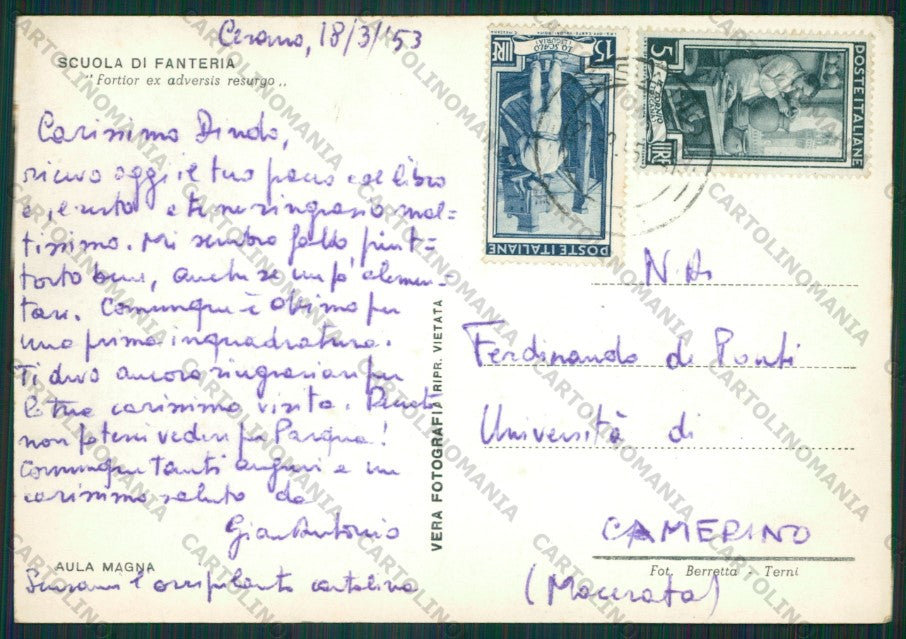 Cesano, 18/3/'53
SCUOLA DI FANTERIA
"Fortior ex adversis resurgo„
Carissimo Dindo,
ricevo oggi il tuo pacco col libro
e il resto e te ne ringrazio mol=
tissimo. Mi sembra fatto piut=
tosto bene, anche se un po' elemen=
tare. Comunque è ottimo per
una prima inquadratura.
Ti devo ancora ringraziare per
la tua carissima visita. Peccato
non potersi vedere per Pasqua!
Comunque tanti auguri e un
carissimo saluto da
GianAntonio
AULA MAGNA
Scusami l'orripilante cartolina
VERA FOTOGRAFIA RIPR. VIETATA
15 LIRE
LO SCALO
POSTE ITALIANE
5 LIRE
POSTE ITALIANE
N.H.
Ferdinando de Ponti
Università di
CAMERINO
Fot. Berretta - Terni
(Macerata)
CARTOLINOMANIA